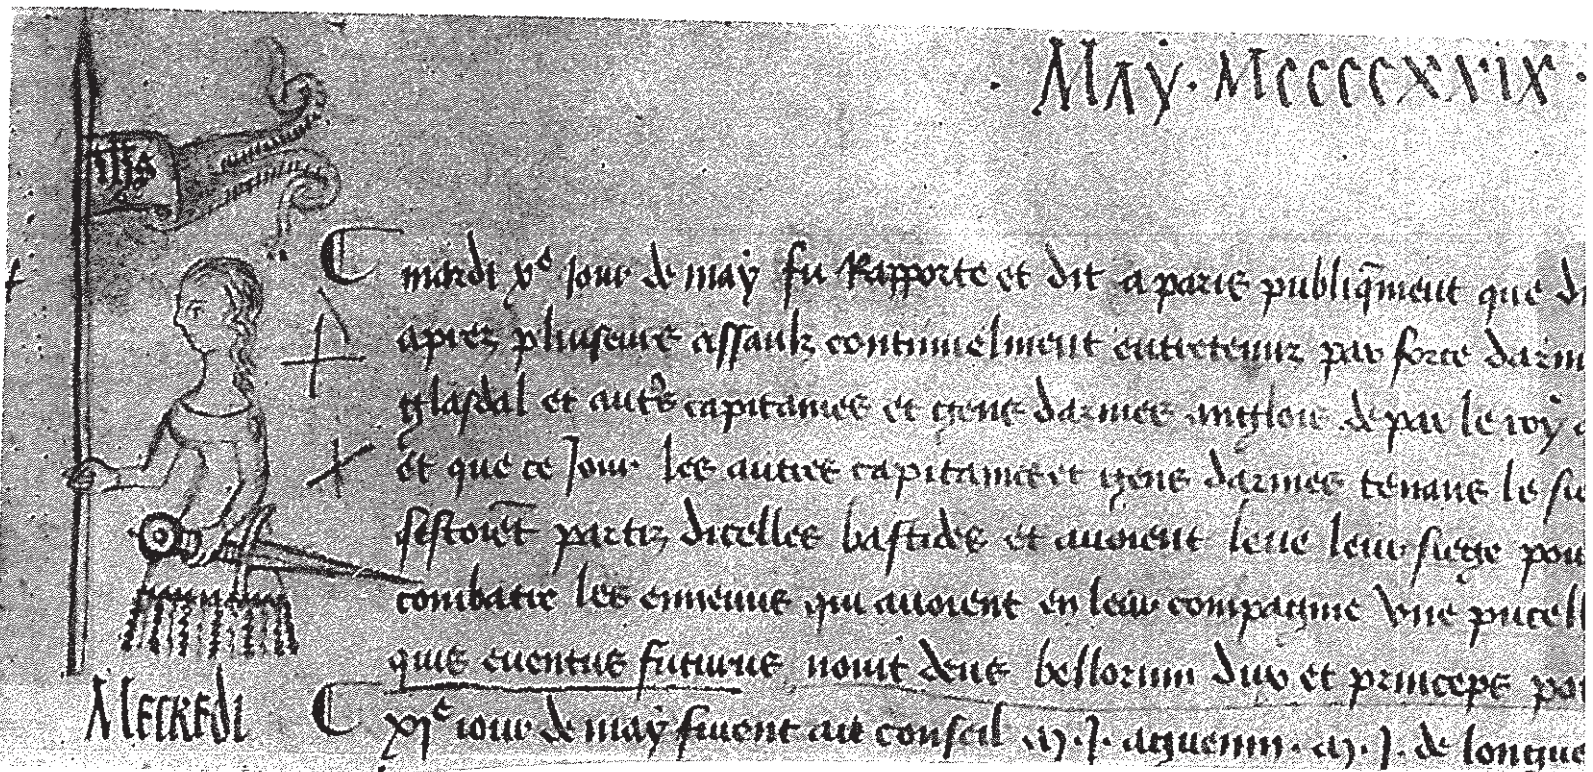 · MAY · MCCCCXXIX ·
IHS
mardi xe jour de may fu Rapporte et dit a paris publiqment que
apres pluseurs assaulz continuelment entretenuz par force darm
glasdal et autrs capitaines et gens darmes anglois de par le roy
et que ce jour les autres capitaines et gens darmes tenans le si
sestoiet partiz dicelles bastides et avoient leve leur siege pou
combatre les ennemis qui avoient en leur compagnie une pucell
quis eventus futurus novit deus bellorum dux et princeps po
MECREDI
XIe iour de may furent au conseil m. J. aguenin. m. J. de longue